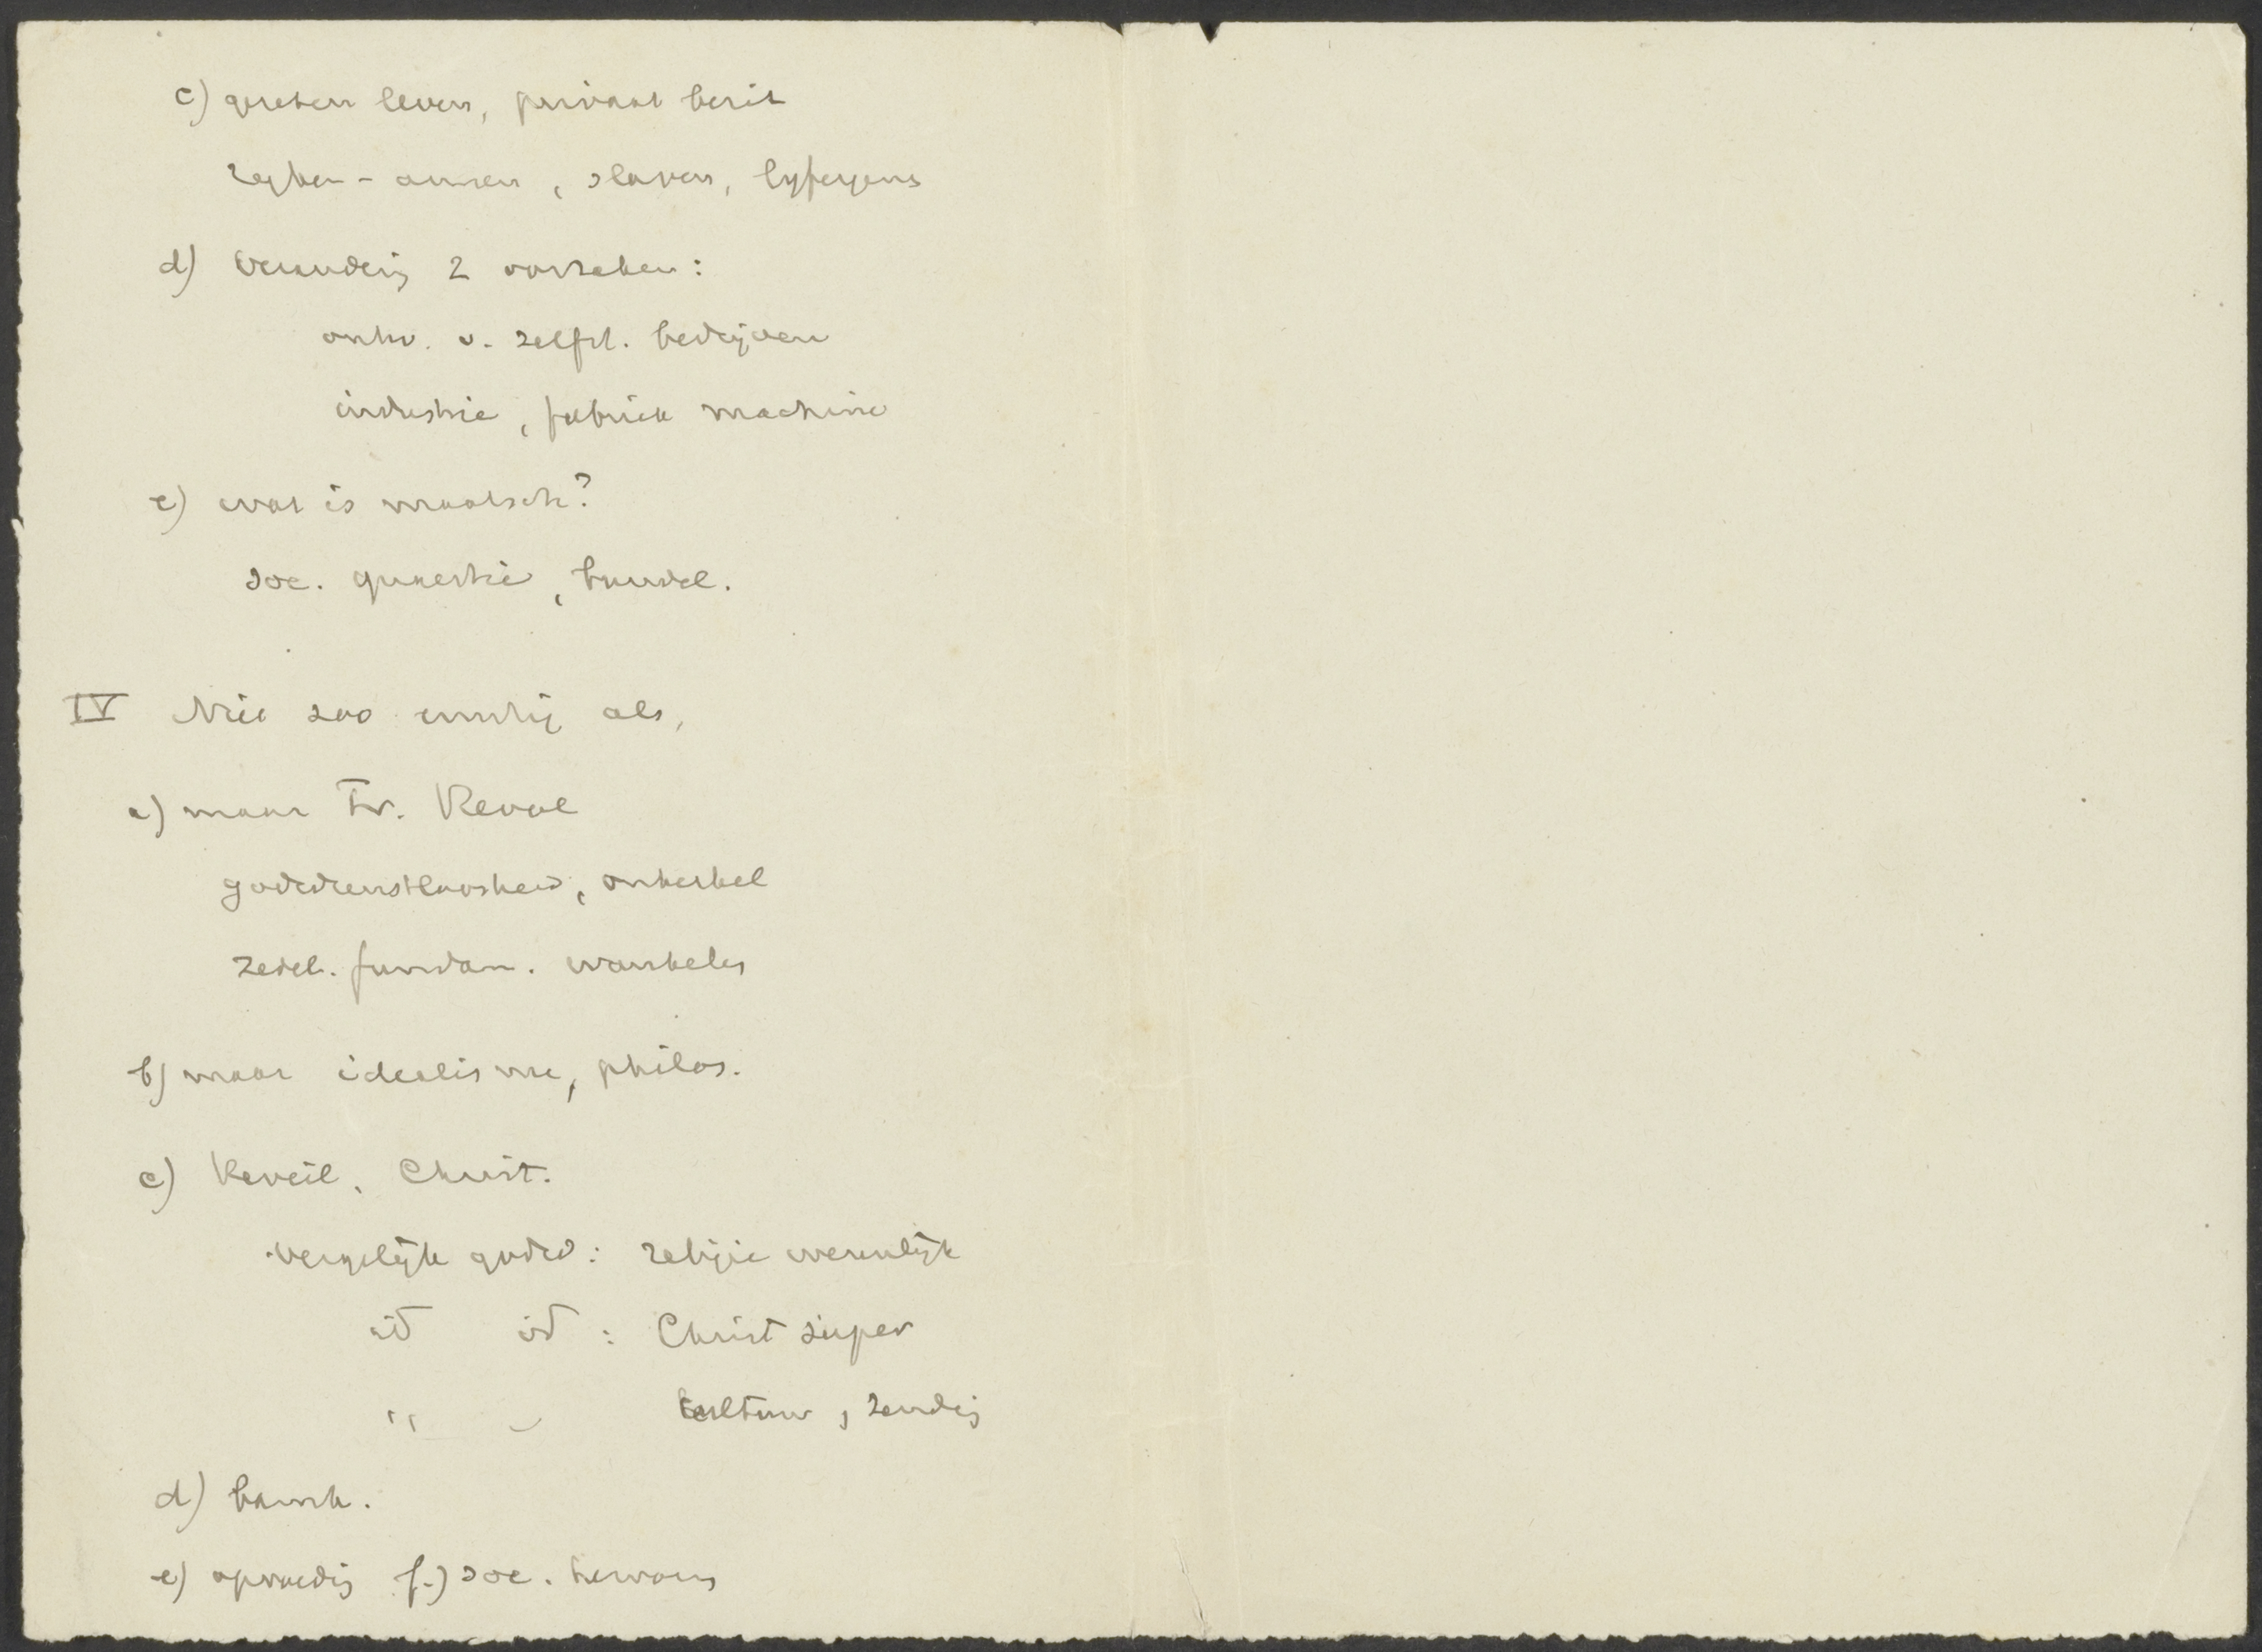 c) gescheiden leven, privaat bezit
rijken - armen, slaven, lijfeigens
d) Verandering 2 oorzaken:
ontw. v. zelfst. bedrijven
industrie, fabriek machine
e) wat is maatsch?
soc. quaestie, bundel.
IV Nie zoo ernstig als,
a) maar Fr. Revol
godsdienstloosheid, onkerkel
zedel. fundam. wankelen
b) maar idealisme, philos.
c) Reveil, Christ.
vergelijk godsd: religie wezenlijk
id id : Christ super
" " cultuur, zending
d) barmh.
e) opvoeding f.) soc. hervorm